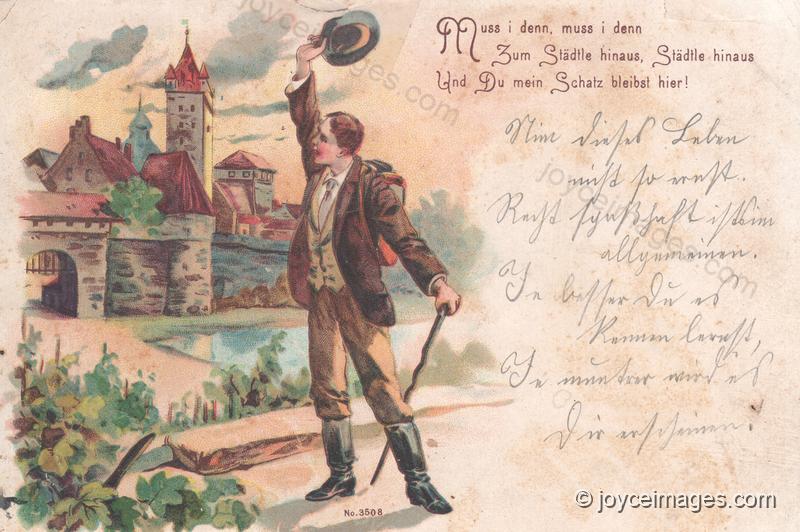 Muss i denn, muss i denn
Zum Städtle hinaus, Städtle hinaus
Und Du mein Schatz bleibst hier!
Nim dieses Leben
nicht so ernst.
Recht spaßhaft ists im
allgemeinen.
Je besser Du es
kennen lernst,
Je muntrer wird es
Dir erscheinen.
No. 3508
joyceimages.com
joyceimages.com
joyceimages.com
© joyceimages.com